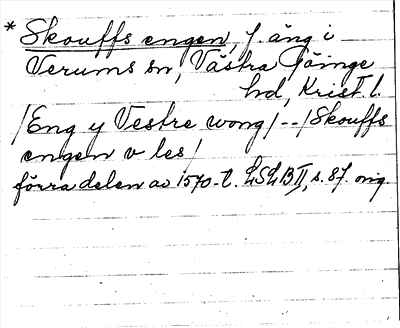 * Skouffs engen, f. äng i
Verums sn, Västra Göinge
hd, Krist. l.
/Eng y Vestre wong/--/Skouffs
engen v les/
förra delen av 1570-t. LSLB II, s. 87. orig.